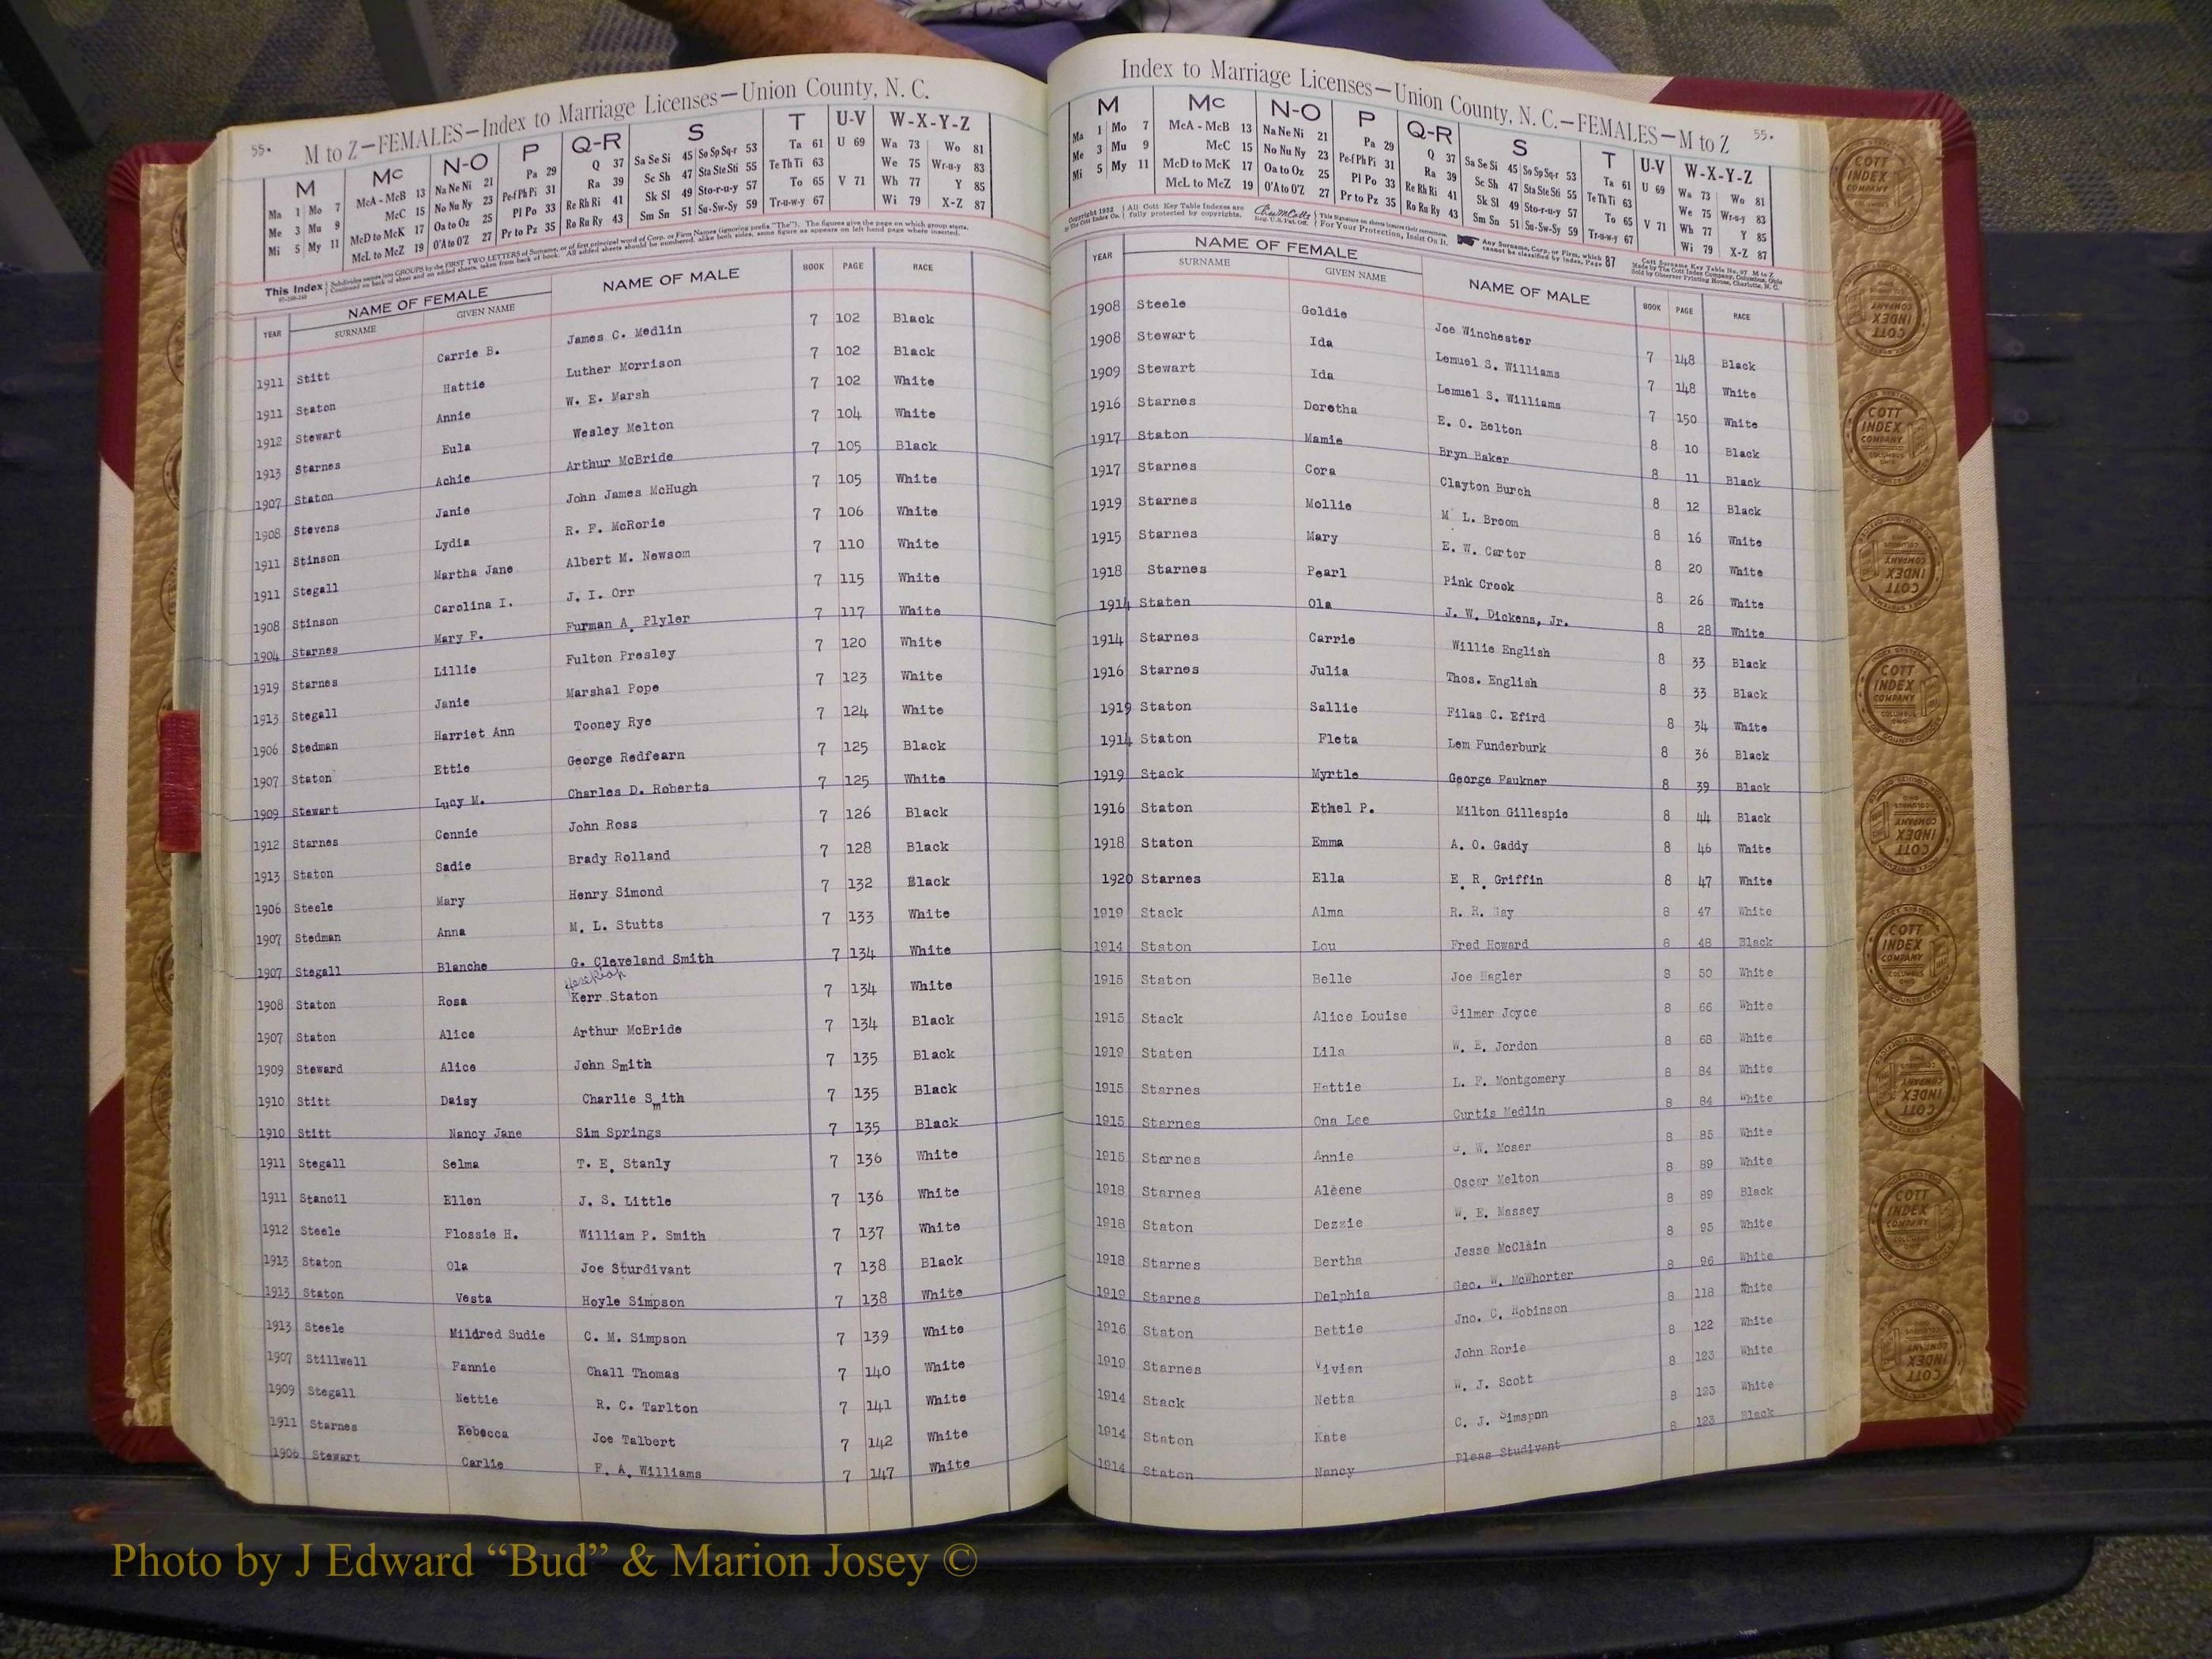 55.
M to Z—FEMALES—Index to Marriage Licenses—Union County, N. C.
M Mc N-O P Q-R S T U-V W-X-Y-Z
Ma 1 Mo 7 McA - McB 13 Na Ne Ni 21 Pa 29 Q 37 Sa Se Si 45 So Sp Sq-r 53 Ta 61 U 69 Wa 73 Wo 81
Me 3 Mu 9 McC 15 No Nu Ny 23 Pe-f Ph Pi 31 Ra 39 Sc Sh 47 Sta Ste Sti 55 Te Th Ti 63 We 75 Wr-u-y 83
Mi 5 My 11 McD to McK 17 Oa to Oz 25 Pl Po 33 Re Rh Ri 41 Sk Sl 49 Sto-r-u-y 57 To 65 V 71 Wh 77 Y 85
McL to McZ 19 O'A to O'Z 27 Pr to Pz 35 Ro Ru Ry 43 Sm Sn 51 Su-Sw-Sy 59 Tr-u-w-y 67 Wi 79 X-Z 87
This Index Subdivides names into GROUPS by the FIRST TWO LETTERS of Surname, or of first principal word of Corp. or Firm Names (ignoring prefix "The"). The figures give the page on which group starts.
Continued on back of sheet and on added sheets, taken from back of book. All added sheets should be numbered, alike both sides, same figure as appears on left hand page where inserted.
YEAR NAME OF FEMALE NAME OF MALE BOOK PAGE RACE
SURNAME GIVEN NAME
1911 Stitt Carrie B. James C. Medlin 7 102 Black
1911 Staton Hattie Luther Morrison 7 102 Black
1912 Stewart Annie W. E. Marsh 7 102 White
1913 Starnes Eula Wesley Melton 7 104 White
1907 Staton Achie Arthur McBride 7 105 Black
1908 Stevens Janie John James McHugh 7 105 White
1911 Stinson Lydia R. F. McRorie 7 106 White
1911 Stegall Martha Jane Albert M. Newsom 7 110 White
1908 Stinson Carolina I. J. I. Orr 7 115 White
1904 Starnes Mary F. Furman A. Plyler 7 117 White
1919 Starnes Lillie Fulton Presley 7 120 White
1913 Stegall Janie Marshal Pope 7 123 White
1906 Stedman Harriet Ann Tooney Rye 7 124 White
1907 Staton Ettie George Redfearn 7 125 Black
1909 Stewart Lucy M. Charles D. Roberts 7 125 White
1912 Starnes Connie John Ross 7 126 Black
1913 Staton Sadie Brady Rolland 7 128 Black
1906 Steele Mary Henry Simond 7 132 Black
1907 Stedman Anna M. L. Stutts 7 133 White
1907 Stegall Blanche G. Cleveland Smith 7 134 White
1908 Staton Rosa Kerr Staton 7 134 White
1907 Staton Alice Arthur McBride 7 134 Black
1909 Steward Alice John Smith 7 135 Black
1910 Stitt Daisy Charlie Smith 7 135 Black
1910 Stitt Nancy Jane Sim Springs 7 135 Black
1911 Stegall Selma T. E. Stanly 7 136 White
1911 Stancil Ellen J. S. Little 7 136 White
1912 Steele Flossie H. William P. Smith 7 137 White
1913 Staton Ola Joe Sturdivant 7 138 Black
1913 Staton Vesta Hoyle Simpson 7 138 White
1913 Steele Mildred Sudie C. M. Simpson 7 139 White
1907 Stillwell Fannie Chall Thomas 7 140 White
1909 Stegall Nettie R. C. Tarlton 7 141 White
1911 Starnes Rebecca Joe Talbert 7 142 White
1906 Stewart Carlie F. A. Williams 7 147 White
Index to Marriage Licenses—Union County, N. C.—FEMALES—M to Z
55.
M Mc N-O P Q-R S T U-V W-X-Y-Z
Ma 1 Mo 7 McA - McB 13 Na Ne Ni 21 Pa 29 Q 37 Sa Se Si 45 So Sp Sq-r 53 Ta 61 U 69 Wa 73 Wo 81
Me 3 Mu 9 McC 15 No Nu Ny 23 Pe-f Ph Pi 31 Ra 39 Sc Sh 47 Sta Ste Sti 55 Te Th Ti 63 We 75 Wr-u-y 83
Mi 5 My 11 McD to McK 17 Oa to Oz 25 Pl Po 33 Re Rh Ri 41 Sk Sl 49 Sto-r-u-y 57 To 65 V 71 Wh 77 Y 85
McL to McZ 19 O'A to O'Z 27 Pr to Pz 35 Ro Ru Ry 43 Sm Sn 51 Su-Sw-Sy 59 Tr-u-w-y 67 Wi 79 X-Z 87
Copyright 1932 All Cott Key Table Indexes are This signature on sheets insures their sameness. Any Surname, Corp. or Firm, which Cott Surname Key Table No. 97 M to Z
by The Cott Index Co. fully protected by copyrights. Reg. U.S. Pat. Off. For Your Protection, Insist On It. cannot be classified by index, Page 87 Made by The Cott Index Company, Columbus, Ohio
Sold by Observer Printing House, Charlotte, N. C.
YEAR NAME OF FEMALE NAME OF MALE BOOK PAGE RACE
SURNAME GIVEN NAME
1908 Steele Goldie Joe Winchester 7 148 Black
1908 Stewart Ida Lemuel S. Williams 7 148 White
1909 Stewart Ida Lemuel S. Williams 7 150 White
1916 Starnes Doretha E. O. Belton 8 10 Black
1917 Staton Mamie Bryn Baker 8 11 Black
1917 Starnes Cora Clayton Burch 8 12 Black
1919 Starnes Mollie M L. Broom 8 16 White
1915 Starnes Mary E. W. Carter 8 20 White
1918 Starnes Pearl Pink Crook 8 26 White
1914 Staten Ola J. W. Dickens, Jr. 8 28 White
1914 Starnes Carrie Willie English 8 33 Black
1916 Starnes Julia Thos. English 8 33 Black
1919 Staton Sallie Filas C. Efird 8 34 White
1914 Staton Fleta Lem Funderburk 8 36 Black
1919 Stack Myrtle George Faukner 8 39 Black
1916 Staton Ethel P. Milton Gillespie 8 44 Black
1918 Staton Emma A. O. Gaddy 8 46 White
1920 Starnes Ella E. R. Griffin 8 47 White
1919 Stack Alma R. R. 8 47 White
1914 Staton Lou Fred Howard 8 48 Black
1915 Staton Belle Joe Hagler 8 50 White
1915 Stack Alice Louise Gilmer Joyce 8 66 White
1919 Staten Lila W. E. Jordon 8 68 White
1915 Starnes Hattie L. F. Montgomery 8 84 White
1915 Starnes Ona Lee Curtis Medlin 8 84 White
1915 Starnes Annie G. W. Moser 8 85 White
1918 Starnes Aleene Oscar Melton 8 89 White
1918 Staton Dezzie W. E. Massey 8 89 Black
1918 Starnes Bertha Jesse McClain 8 95 White
1919 Starnes Delphia Geo. W. McWhorter 8 96 White
1916 Staton Bettie Jno. C. Robinson 8 118 White
1919 Starnes Vivian John Rorie 8 122 White
1914 Stack Netta W. J. Scott 8 123 White
1914 Staton Kate C. J. Simspon 8 123 White
1914 Staton Nancy Pleas Studivant 8 123 Black
COTT INDEX COMPANY
Photo by J Edward “Bud” & Marion Josey ©